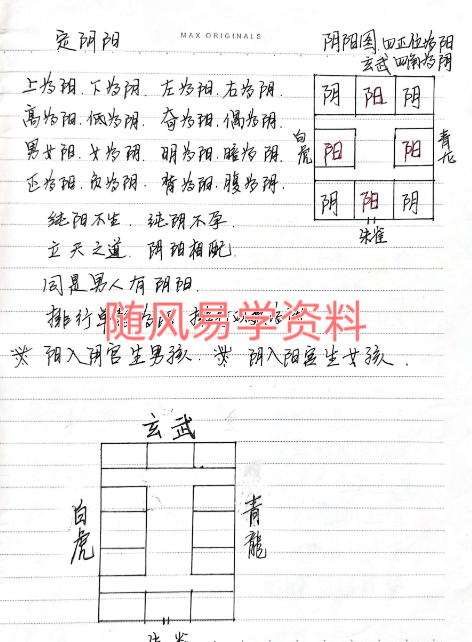 定阴阳
MAX ORIGINALS
阴阳图 四正位为阳
玄武 四角为阴
上为阳、下为阴、左为阳、右为阴、
高为阳、低为阴、奇为阳、偶为阴、
男为阳、女为阴、明为阳、暗为阴、
正为阳、反为阴、背为阳、腹为阴、
纯阳不生、纯阴不孕、
立天之道、阴阳相配、
同是男人有阴阳、
排行单
随风易学资料
※ 阳入阴宫生男孩、※ 阴入阳宫生女孩、
阴 阳 阴
白虎 阳 阳 青龙
阴 阳 阴
朱雀
玄武
白虎
青龍
朱雀